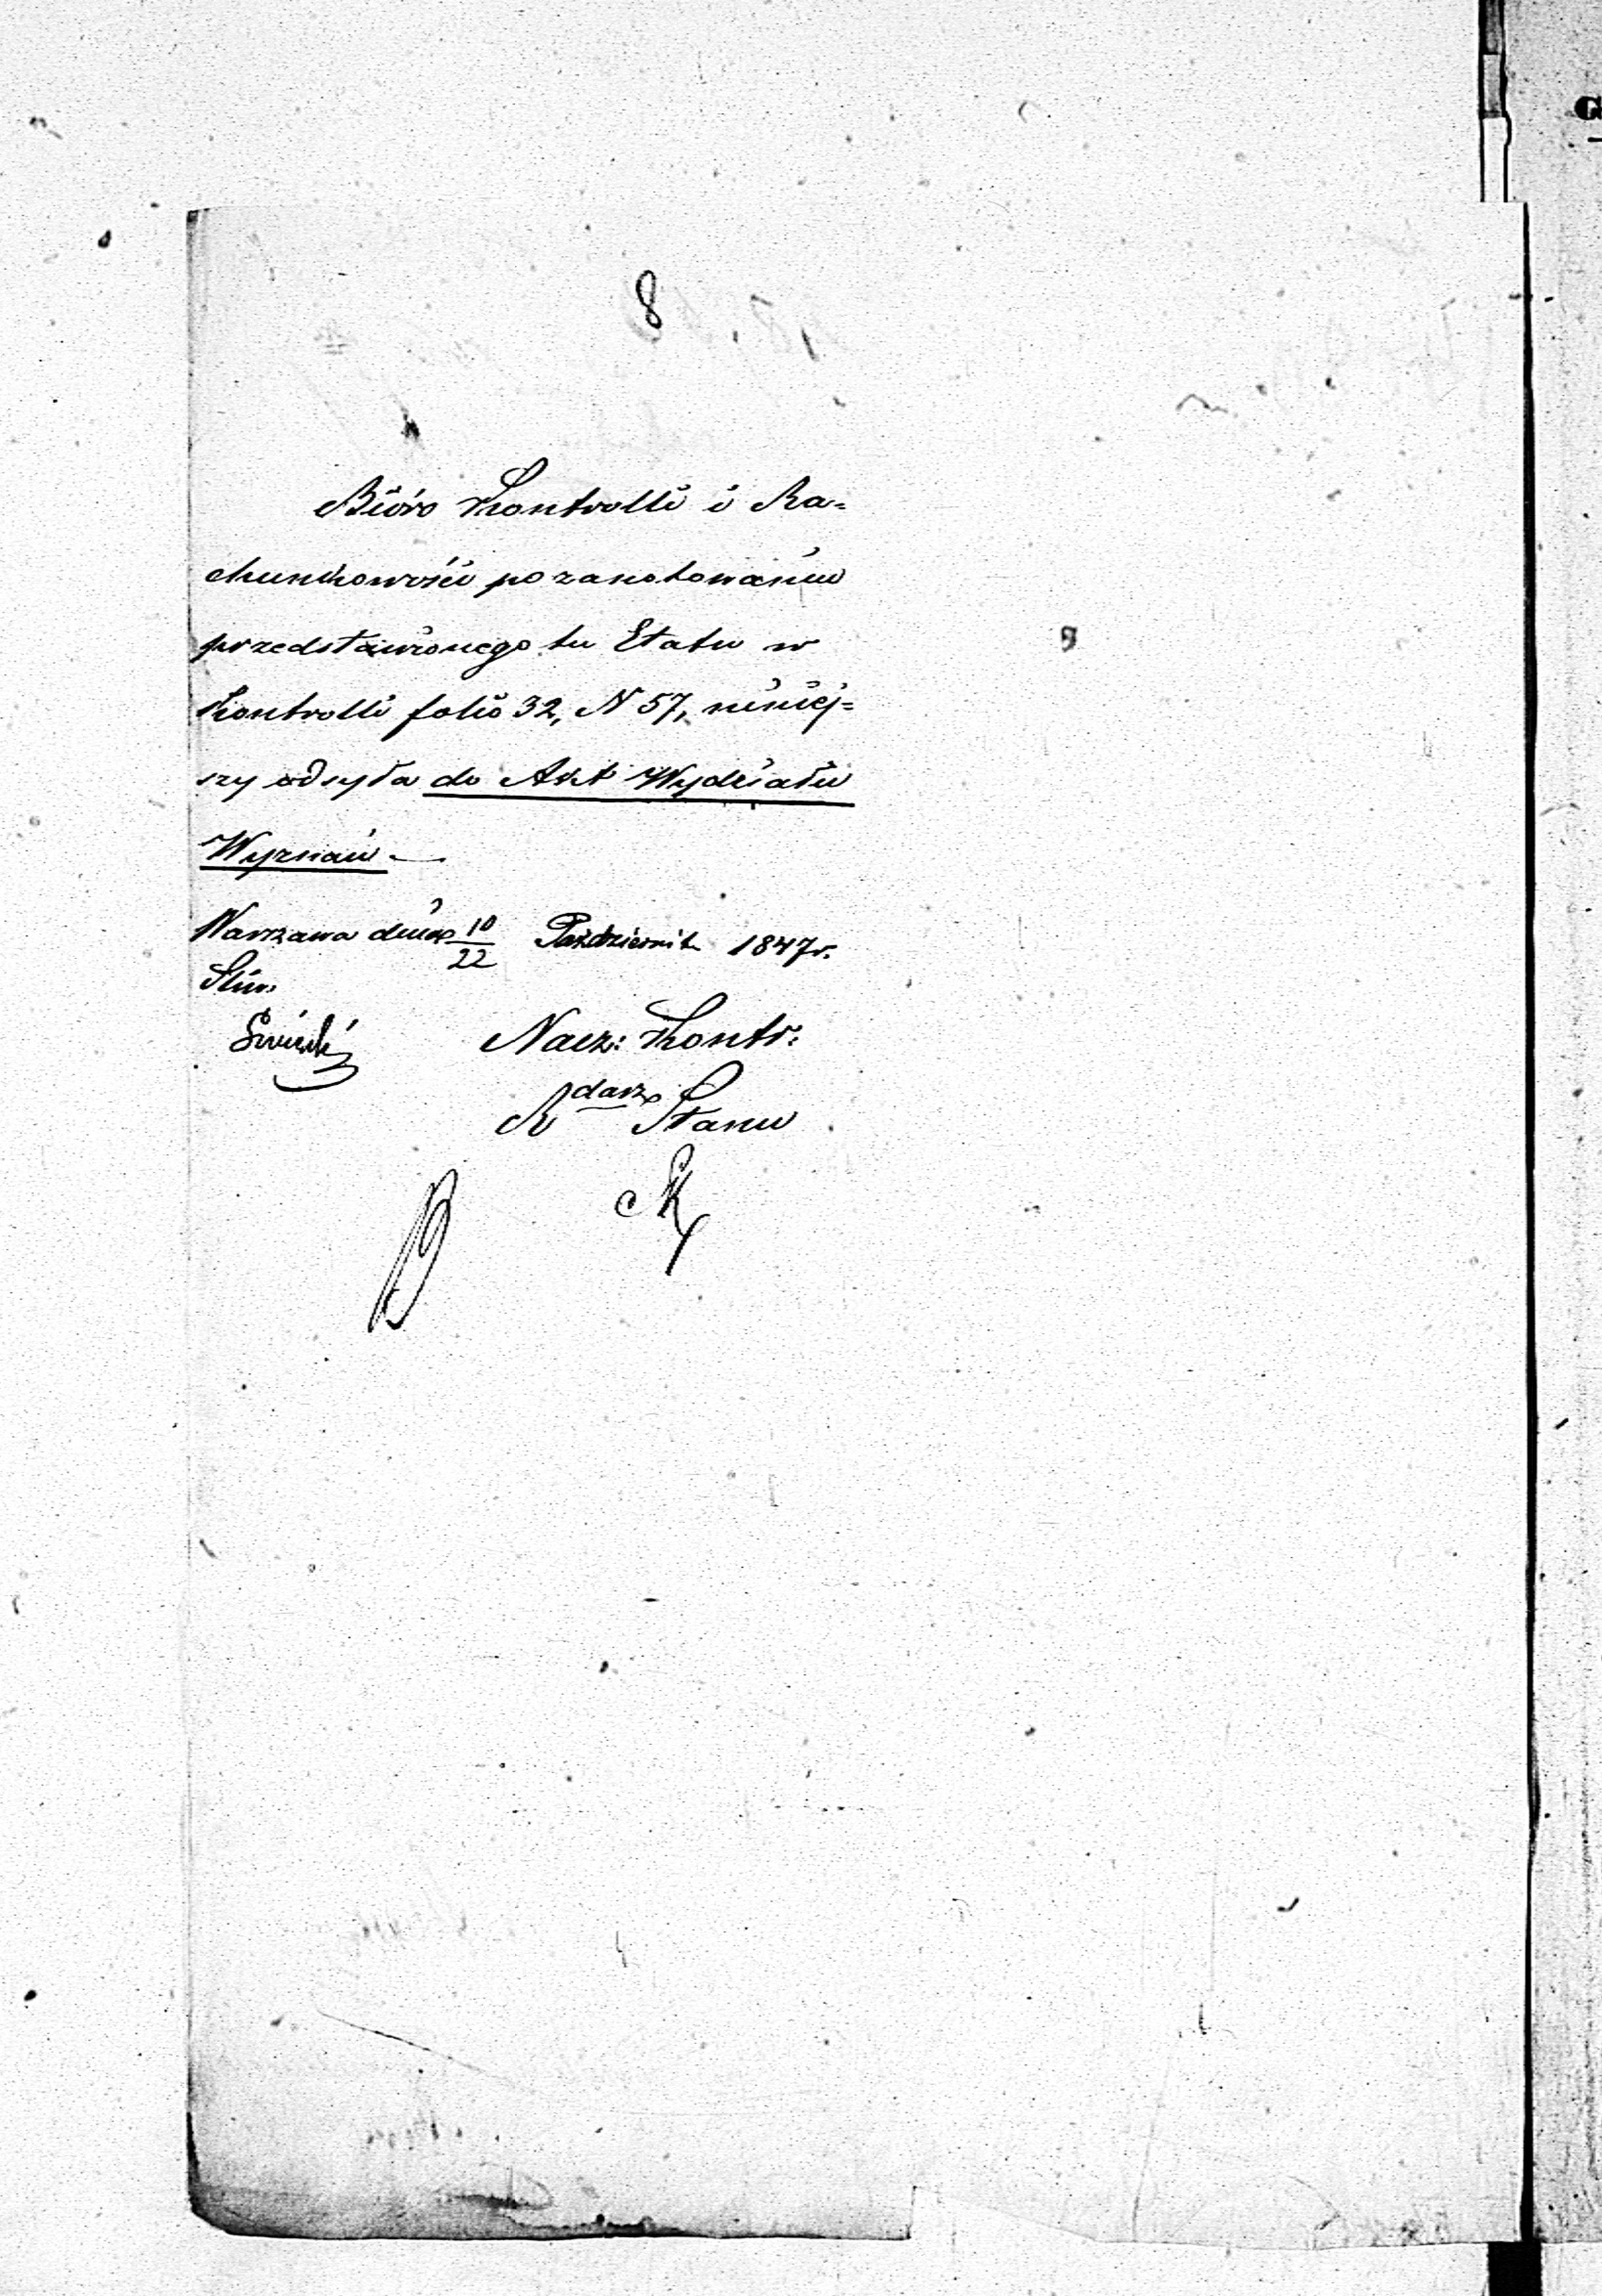 8
Bióro Kontrolli i Ra=
chunkowości po zanotowaniu
przedstawionego tu Etatu w
Kontrolli folio 32, N 57, niniej=
szy odsyła do Akt Wydziału
Wyznań —
Warszawa dnia 10/22 Październik 1847 r.
Nacz: Kontr:
R darz Stanu